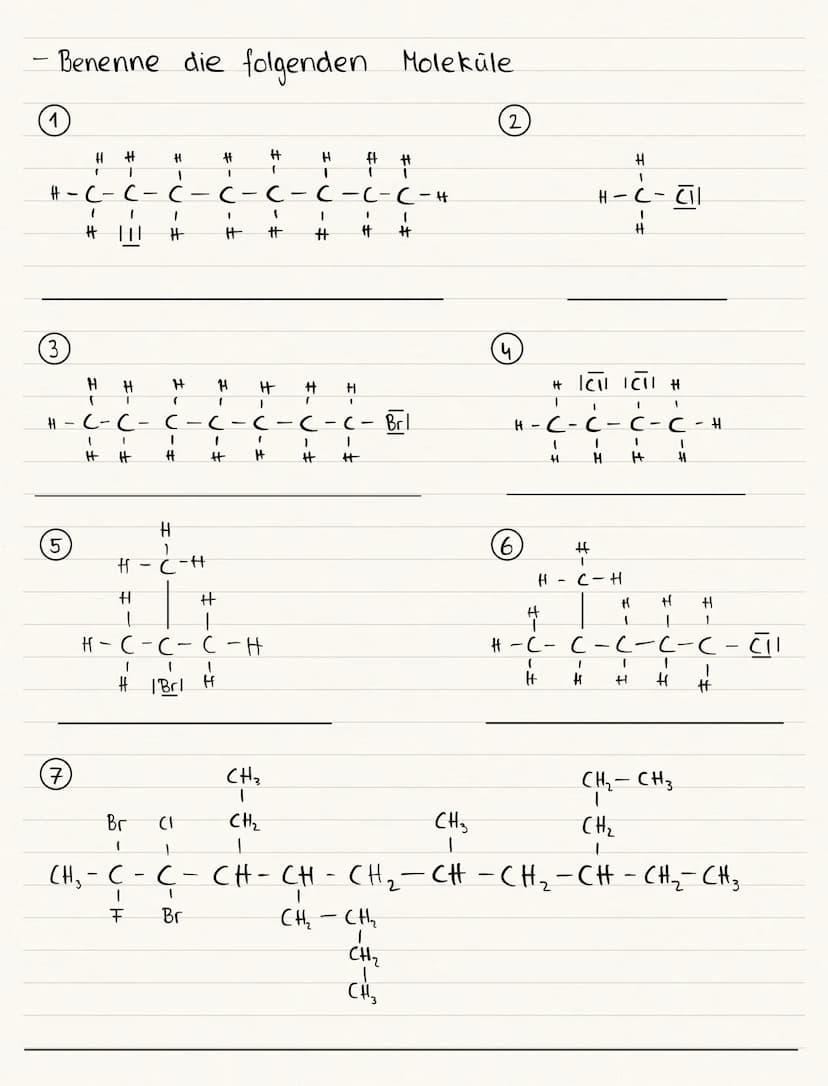 - Benenne die folgenden Moleküle
1 2
H H H H H H H H
H - C - C - C - C - C - C - C - C - H
H |I| H H H H H H
H
H - C - Cl|
H
3 4
H H H H H H H
H - C - C - C - C - C - C - C - Br|
H H H H H H H
H |Cl| |Cl| H
H - C - C - C - C - H
H H H H
5 6
H
H - C - H
H H
H - C - C - C - H
H |Br| H
H
H - C - H
H H H H
H - C - C - C - C - C - Cl|
H H H H H
7
CH3 CH2 - CH3
Br Cl CH2 CH3 CH2
CH3 - C - C - CH - CH - CH2 - CH - CH2 - CH - CH2 - CH3
F Br CH2 - CH2
CH2
CH3